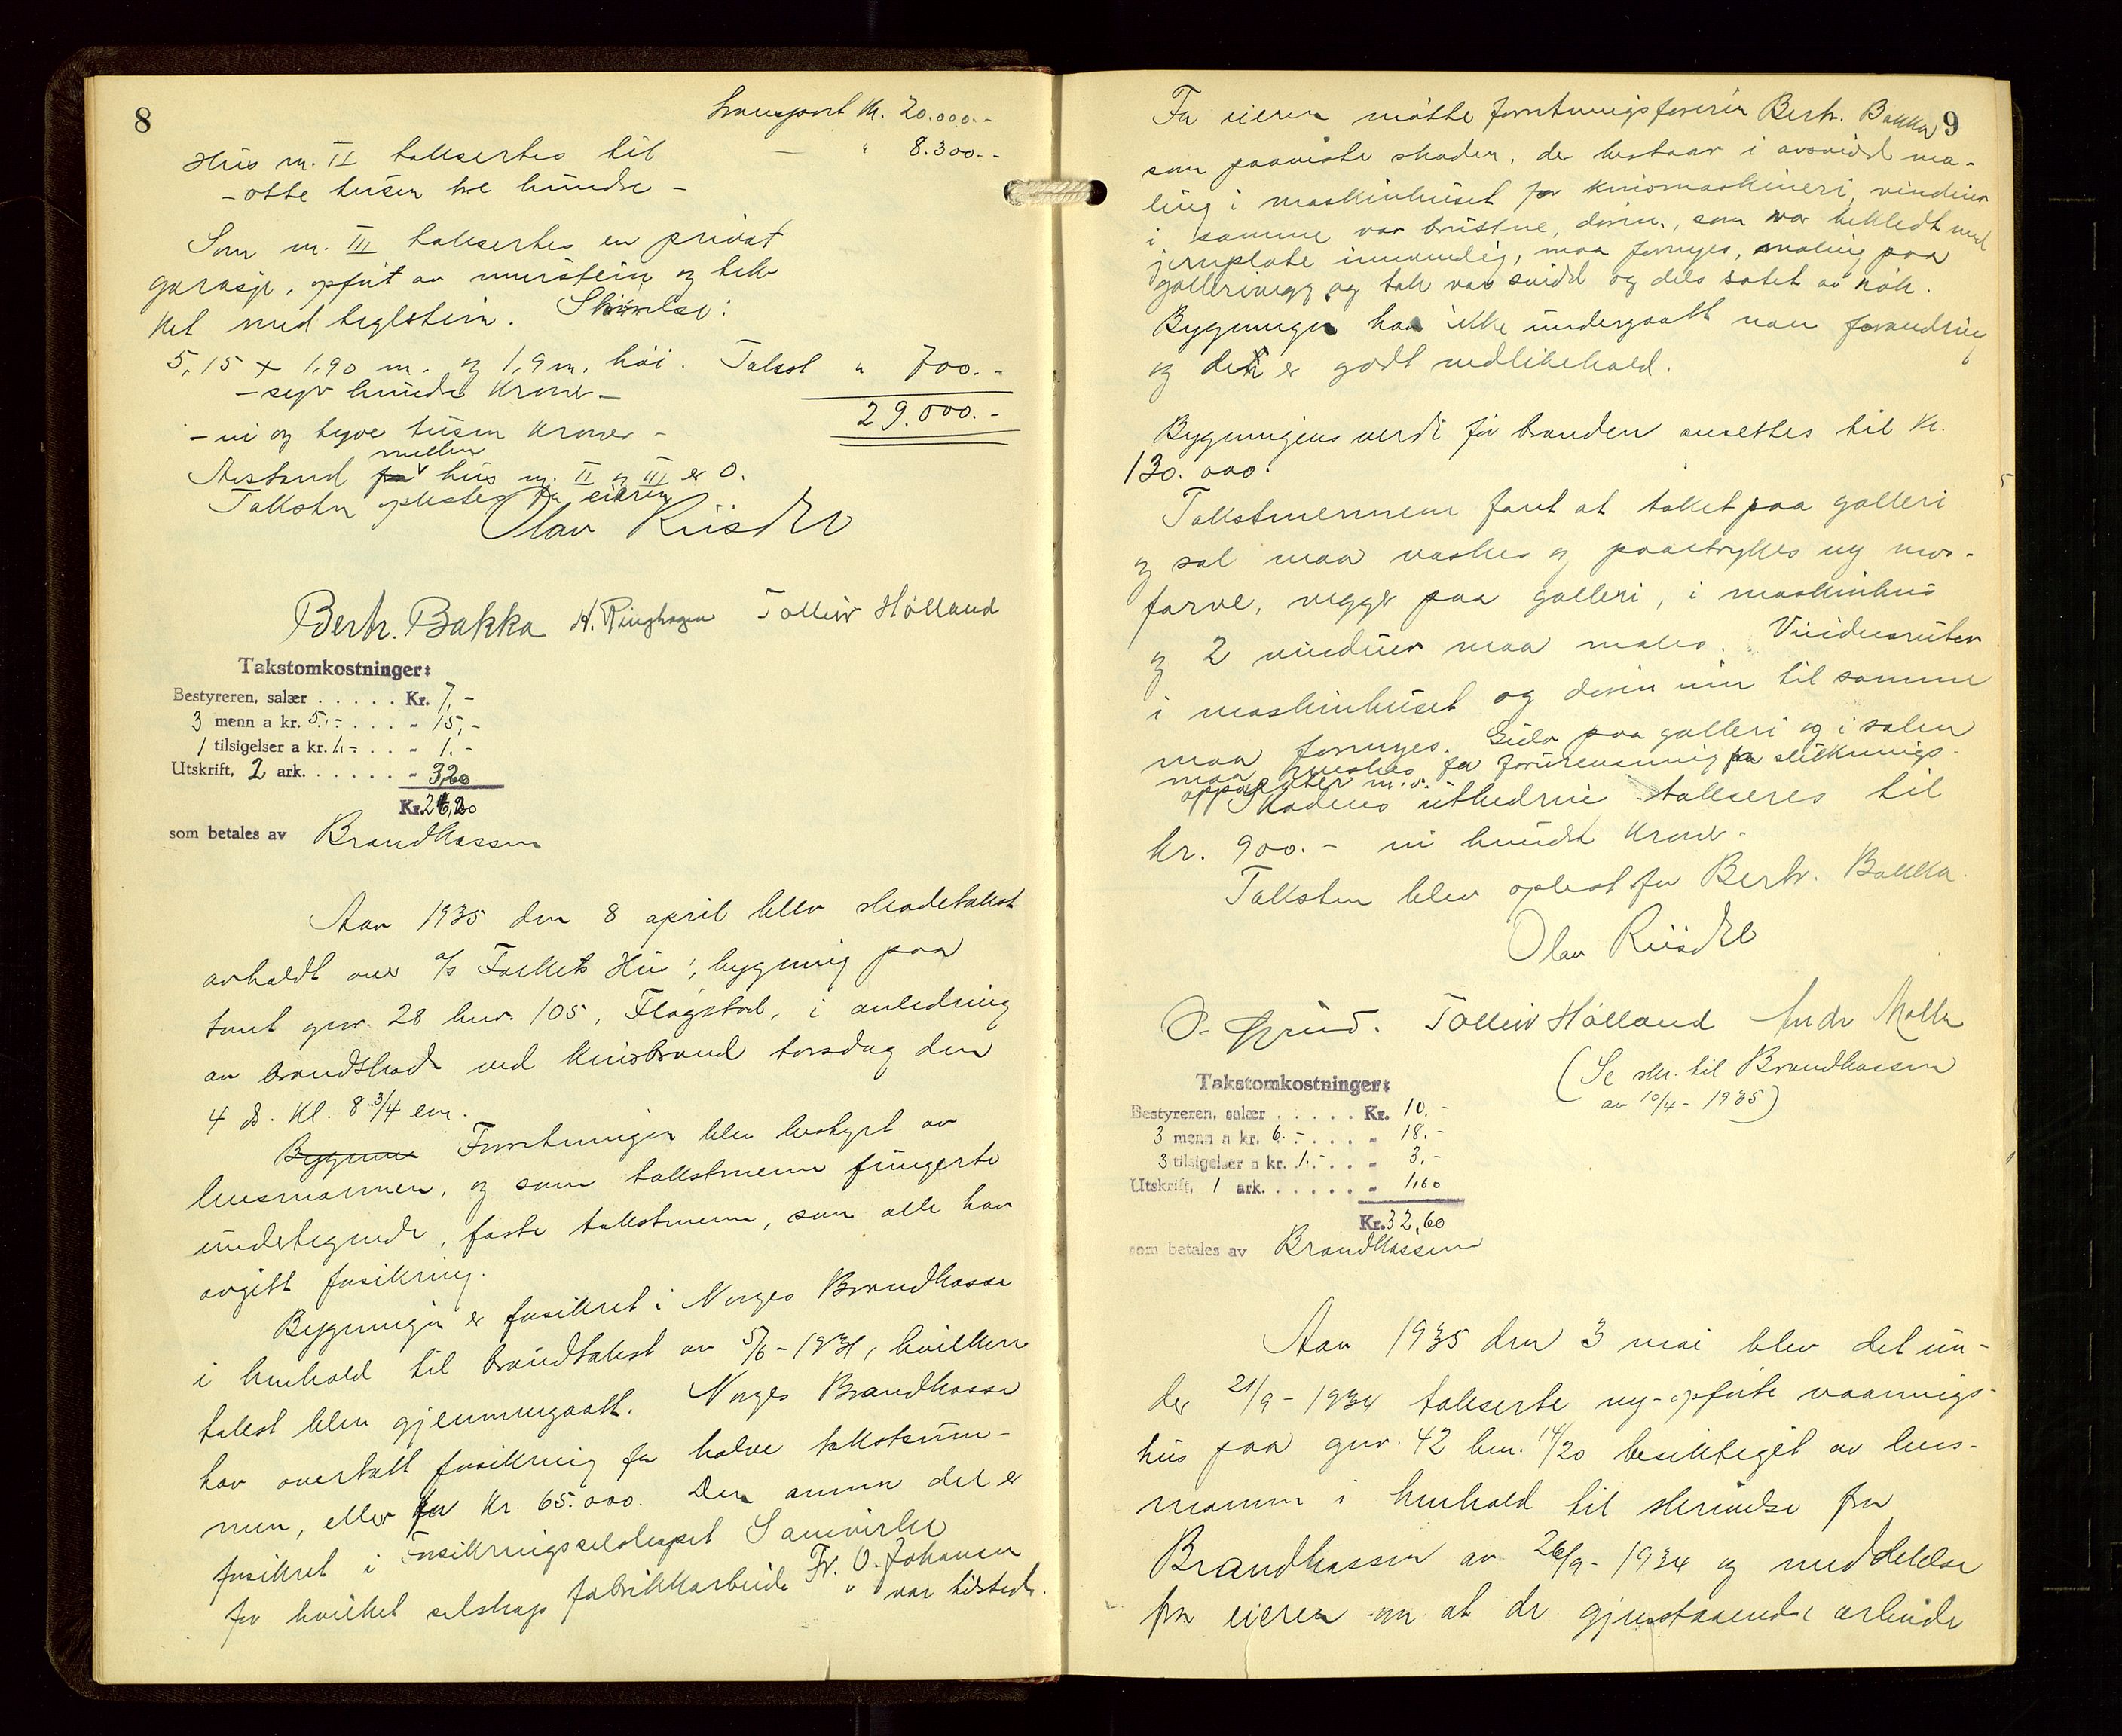 8
Transport Kr. 20.000.-
Hus nr. II taksertes til — " 8.300.-
- otte tusen tre hundre -
Som nr. III taksertes en privat
garasje, opført av murstein og tek-
ket med teglstein. Størrelse:
5,15 x 1,90 m. og 1,9 m. høi. Takst " 700.-
- syv hundre kroner -
29.000.-
- ni og tyve tusen kroner -
mellem
Avstand fra hus nr. II og III er 0.
Taksten oplestes for eieren
Olav Riisdal
Bertr. Bakka H. Ringhagen Tølleiv Hølland
Takstomkostninger:
Bestyreren, salær . . . . . Kr. 7,-
3 menn a kr. 5.- . . . „ 15,-
1 tilsigelser a kr. 1.- . . „ 1.-
Utskrift, 2 ark. . . . . . „ 3,20
Kr. 26,20
som betales av Brandkassen
Aar 1935 den 8 april blev skadetakst
avholdt over a/s Folkets Hus', bygning paa
tomt gnr. 28 bnr. 105, Flogstad, i anledning
av brandskade ved kinobrand torsdag den
4 ds. kl. 8 3/4 em.
Bygnin Forretningen blev bestyrt av
lensmannen, og som takstmenn fungerte
undertegnede, faste takstmenn, som alle har
avgitt forsikring.
Bygningen er forsikret i Norges Brandkasse
i henhold til brandtakst av 5/6-1931, hvilken
takst blev gjennemgaatt. Norges Brandkasse
har overtatt forsikring for halve takstsum-
men, eller for kr. 65.000. Den annen del er
forsikret i Forsikringsselskapet Samvirke
for hvilket selskap fabrikkarbeider Fr. O. Johansen
var tilstede.
9
For eieren møtte forretningsføreren Bertr. Bakka
som paaviste skaden, der bestaar i avsvidd ma-
ling i maskinhuset for kinomaskineri, vinduer
i samme var brustne, døren, som var bekledt med
jernplate innvendig, maa fornyes, maling paa
gallerivegg og tak var svidd og dels sotet av røk.
Bygningen har ikke undergaatt noen forandring
og den er godt vedlikehold.
Bygningens verdi før branden ansettes til kr.
130.000.
Takstmennene fant at taket paa galleri
og sal maa vaskes og paastrykes ny mur-
farve, vegger paa galleri, i maskinhus
og 2 vinduer maa males. Vindusruter
i maskinhuset og døren inn til samme
maa fornyes. Gulv paa galleri og i salen
maa vaskes for forurensning fra sluknings-
apparater m.v.
Skadens utbedring takseres til
kr. 900.- ni hundre kroner.
Taksten blev oplest for Bertr. Bakka.
Olav Riisdal
Tølleiv Hølland
(Se skr. til Brandkassen
av 10/4-1935)
Takstomkostninger:
Bestyreren, salær . . . . . Kr. 10.-
3 menn a kr. 6.- . . . „ 18.-
3 tilsigelser a kr. 1.- . . „ 3,-
Utskrift, 1 ark. . . . . . „ 1,60
Kr. 32,60
som betales av Brandkassen
Aar 1935 den 3 mai blev det un-
der 21/9-1934 takserte ny-opførte vaanings-
hus paa gnr. 42 bnr. 14/20 besiktiget av lens-
mannen i henhold til skrivelse fra
Brandkassen av 26/9-1934 og meddelelse
fra eieren om at de gjenstaaende arbeider